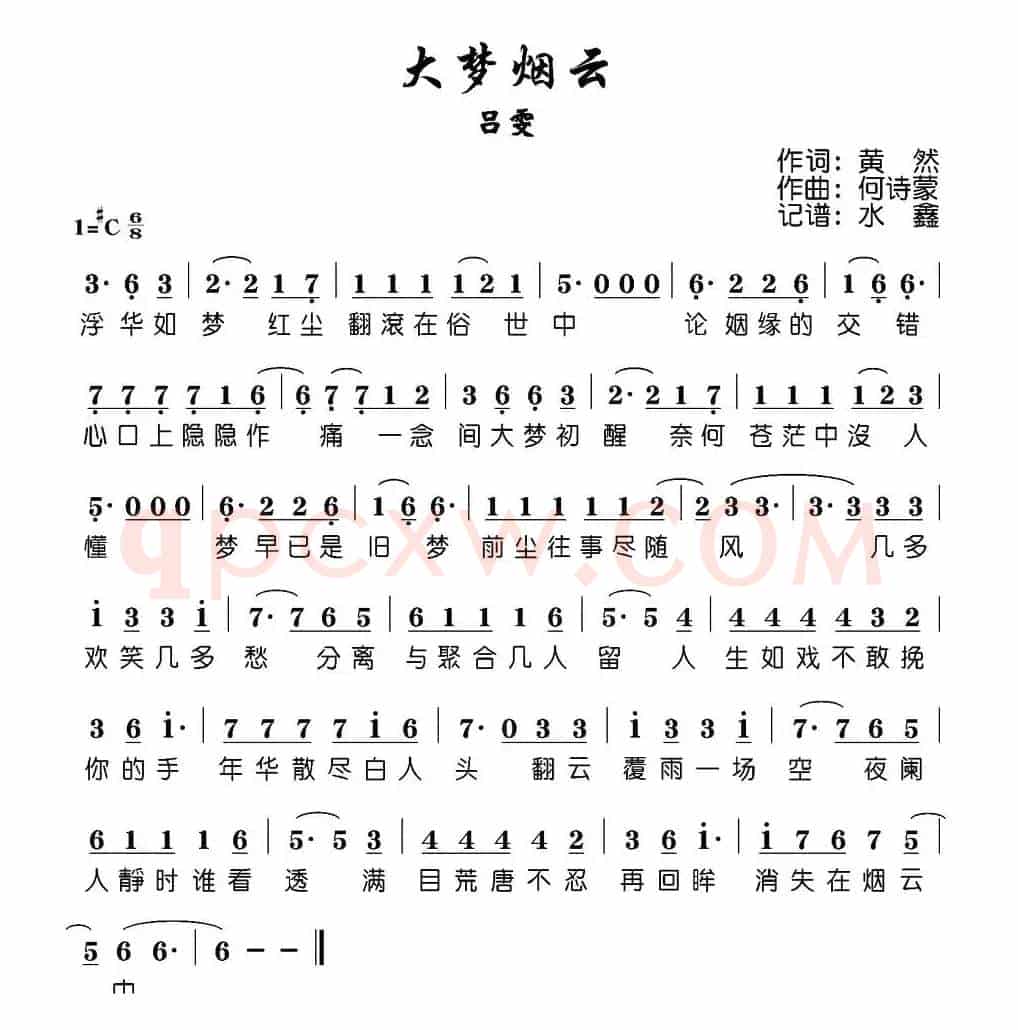 大梦烟云
吕雯
作词：黄 然
作曲：何诗蒙
记谱：水 鑫
1=#C 6/8
3· 6 3 | 2· 2 1 7 | 1 1 1 1 2 1 | 5· 0 0 0 | 6· 2 2 6 | 1 6 6· |
浮华如梦 红尘翻滚在俗世中 论姻缘的交错
7 7 7 7 1 6 | 6 7 7 1 2 | 3 6 6 3 | 2· 2 1 7 | 1 1 1 1 2 3 |
心口上隐隐作 痛 一念间大梦初醒 奈何苍茫中沒人
5· 0 0 0 | 6· 2 2 6 | 1 6 6· | 1 1 1 1 1 2 | 2 3 3· | 3· 3 3 3 |
懂 梦早已是旧梦 前尘往事尽随 风 几多
i 3 3 i | 7· 7 6 5 | 6 1 1 1 6 | 5· 5 4 | 4 4 4 4 3 2 |
欢笑几多愁 分离与聚合几人留 人生如戏不敢挽
3 6 i· | 7 7 7 7 i 6 | 7· 0 3 3 | i 3 3 i | 7· 7 6 5 |
你的手 年华散尽白人头 翻云覆雨一场空 夜阑
6 1 1 1 6 | 5· 5 3 | 4 4 4 4 2 | 3 6 i· | i 7 6 7 5 |
人靜时谁看透 满目荒唐不忍再回眸 消失在烟云
5 6 6· | 6 – – ‖
qpcxw.com